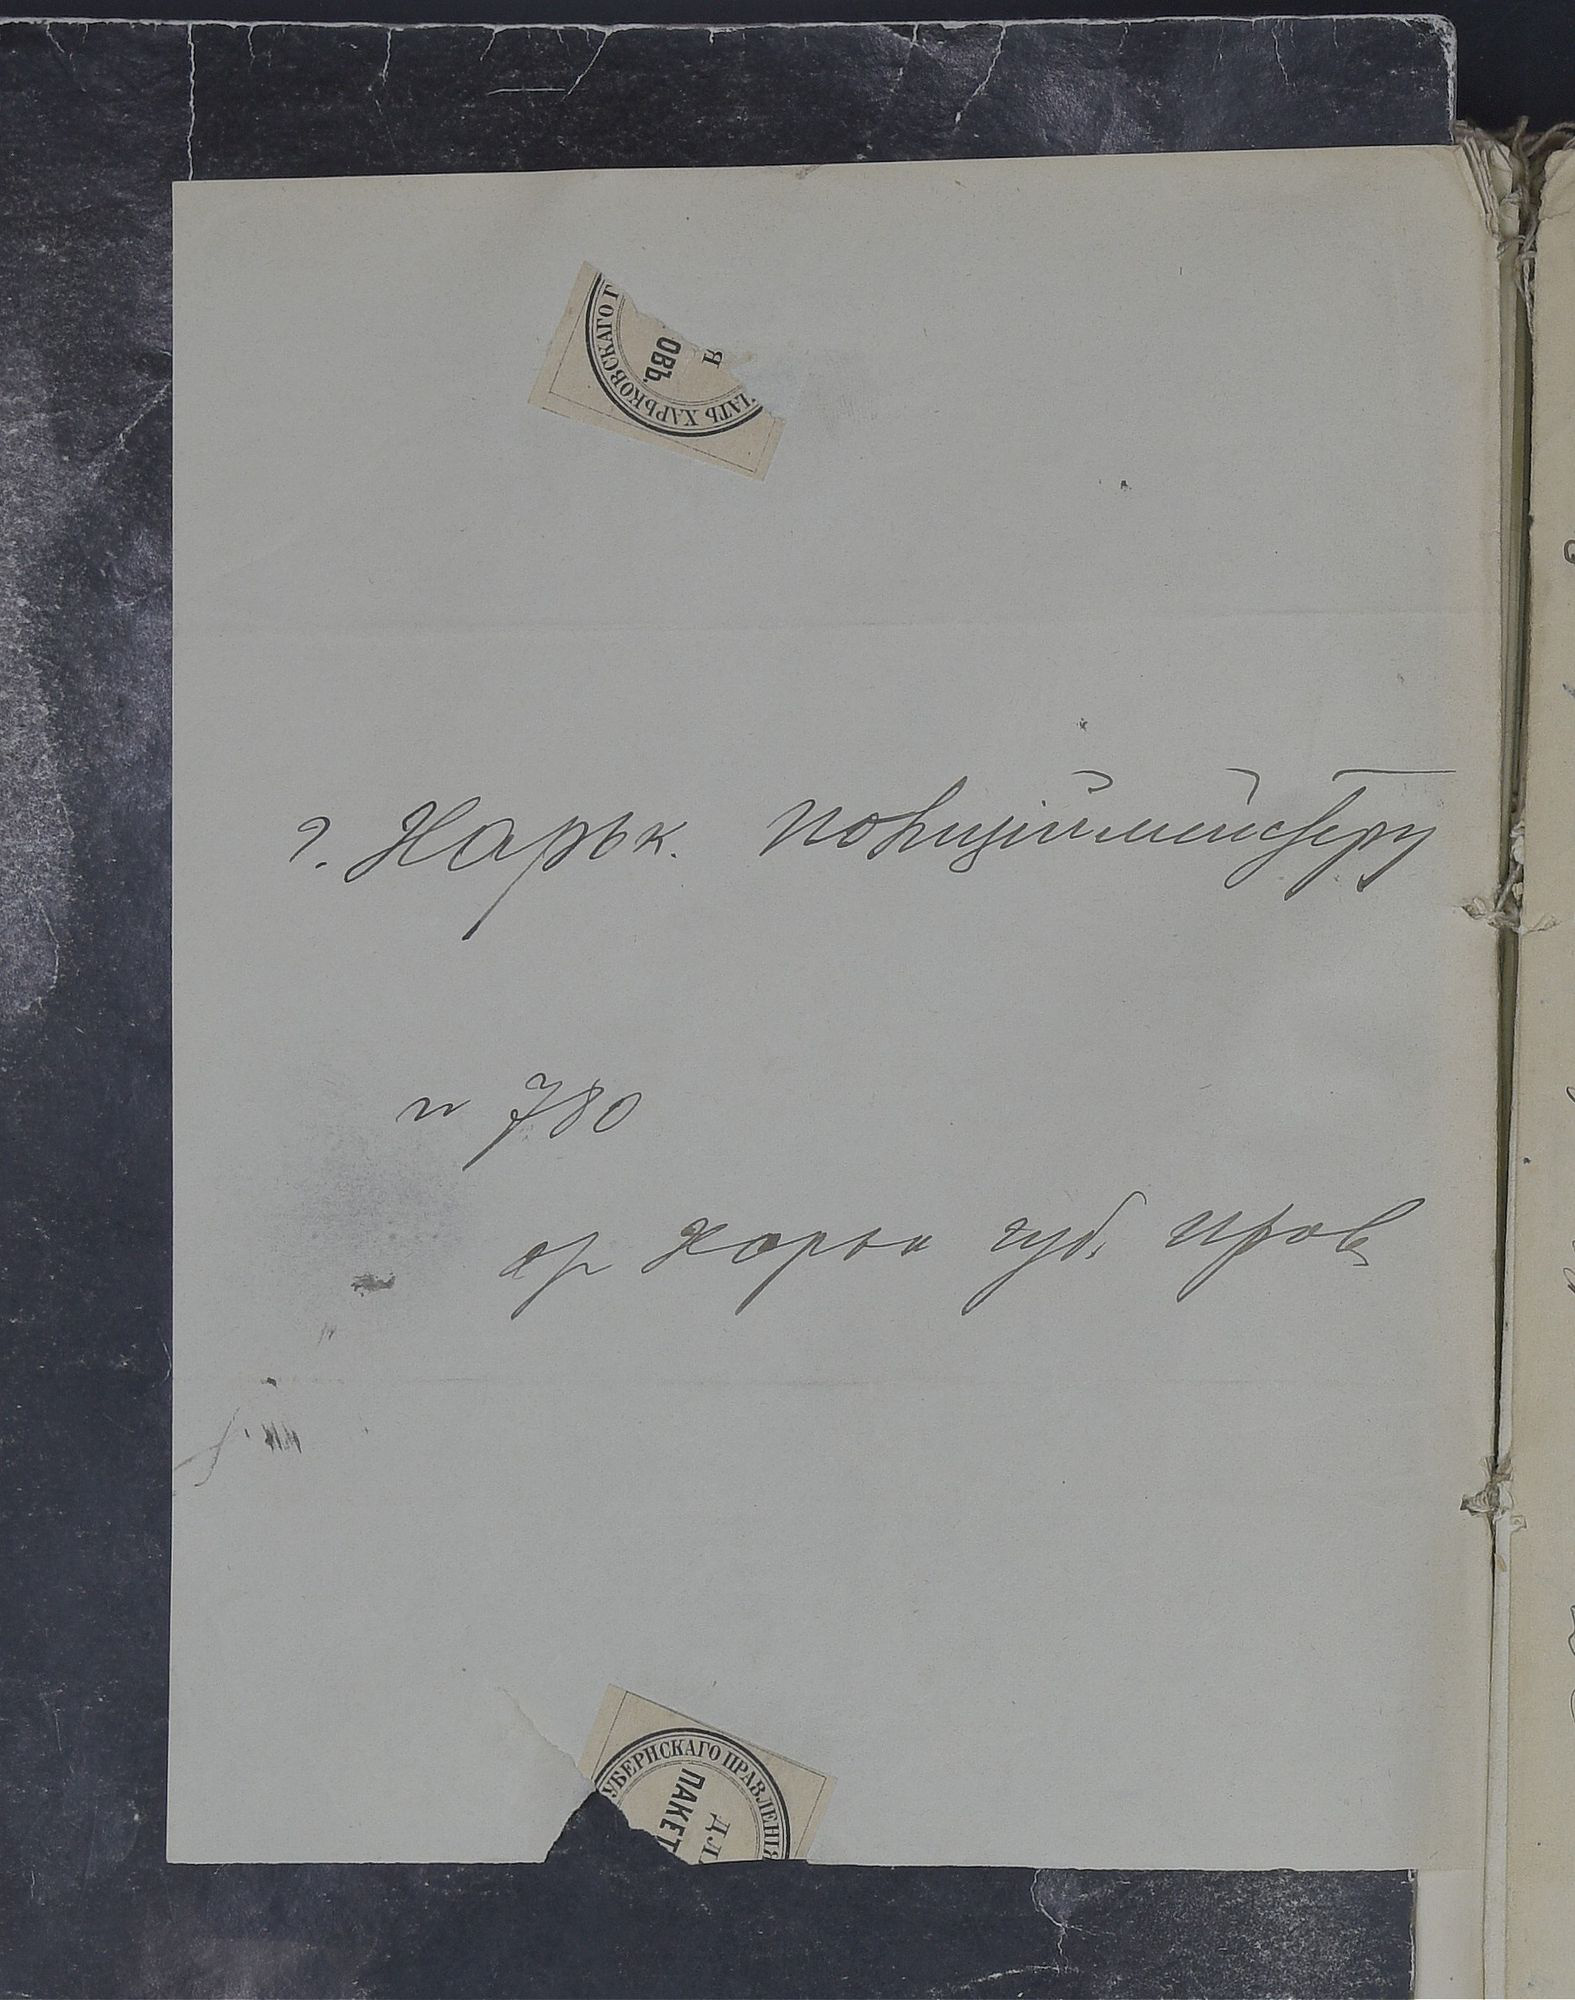 АТЬ ХАРЬКОВСКАГО Г
ОВЪ.
г. Харьк. полиціймейстеру
н 780
от Харьк губ. прав
УБЕРНСКАГО ПРАВЛЕНІЯ
ДЛ
ПАКЕТ